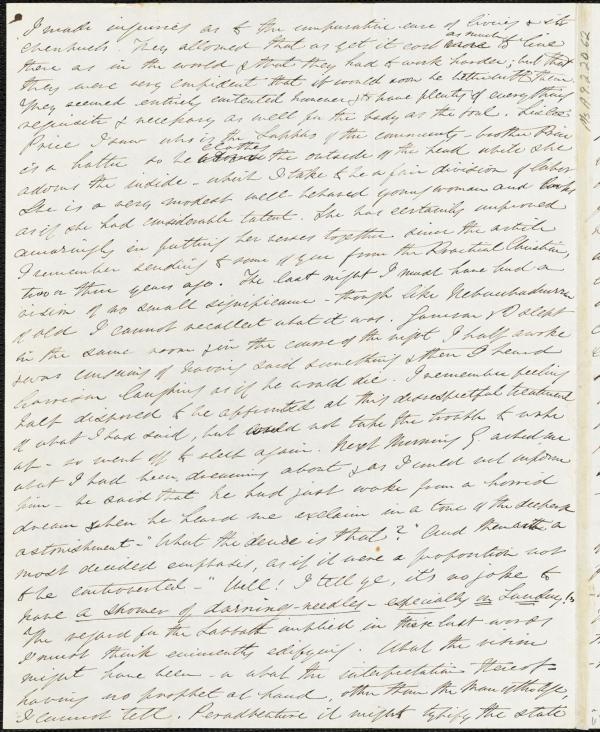 I made inquiries as to the comparative ease of living & its
cheapness. They allowed that as yet it cost as much to live
there as in the world & that they had to work harder; but that
they were very confident that it would soon be better with them.
They seemed entirely contented however, & to have plenty of everything
requisite & necessary as well for the body as the soul. Sister
Price I saw who is the Sappho of the community - brother Price
is a hatter so he clothes the outside of the head while she
adorns the inside - which I take to be a fair division of labor
She is a very modest well-behaved young woman and looks
as if she had considerable talent. She has certainly improved
amazingly in putting her verses together since the article
I remember sending to some of you from the Practical Christian,
two or three years ago. The last night I must have had a
vision of no small significance - though like Nebuchadnezzar
of old I cannot recollect what it was. Garrison & I slept
in the same room & in the course of the night I half awoke
& was conscious of having said something & then I heard
Garrison laughing as if he would die. I remember feeling
half disposed to be affronted at this disrespectful treatment
of what I had said, but could not take the trouble to wake
up - so went off to sleep again. Next morning G. asked me
what I had been dreaming about & as I could not inform
him - he said that he had just woke from a horrid
dream when he heard me exclaim in a tone of the deepest
astonishment - "What the deuce is that?" And then with a
most decided emphasis, as if it were a proposition not
to be controverted - "Well! I tell ye, it's no joke to
have a shower of darning-needles - especially on Sunday."
The regard for the Sabbath implied in these last words
I must think eminently edifying. What the vision
might have been - or what the interpretation thereof -
having no prophet at hand, other than the
I cannot tell. Peradventure it might typify the state
Ms A.9.2.20.62